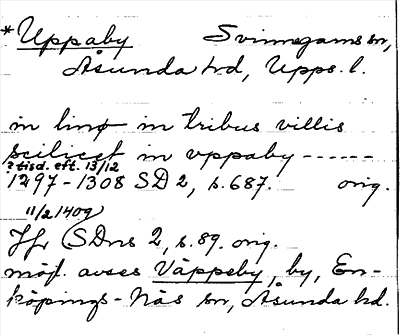 *Uppåby Svinnegarns sn,
Åsunda hd, Upps. l.
in linø in tribus villis
scilicet in vppaby ------
? tisd. eft. 13/12
1297-1308 SD 2, s. 687. orig.
11/2 1409
Jfr (SDns 2, s. 89. orig.
möjl. avses Väppeby, by, En-
köpings-Näs sn, Åsunda hd.